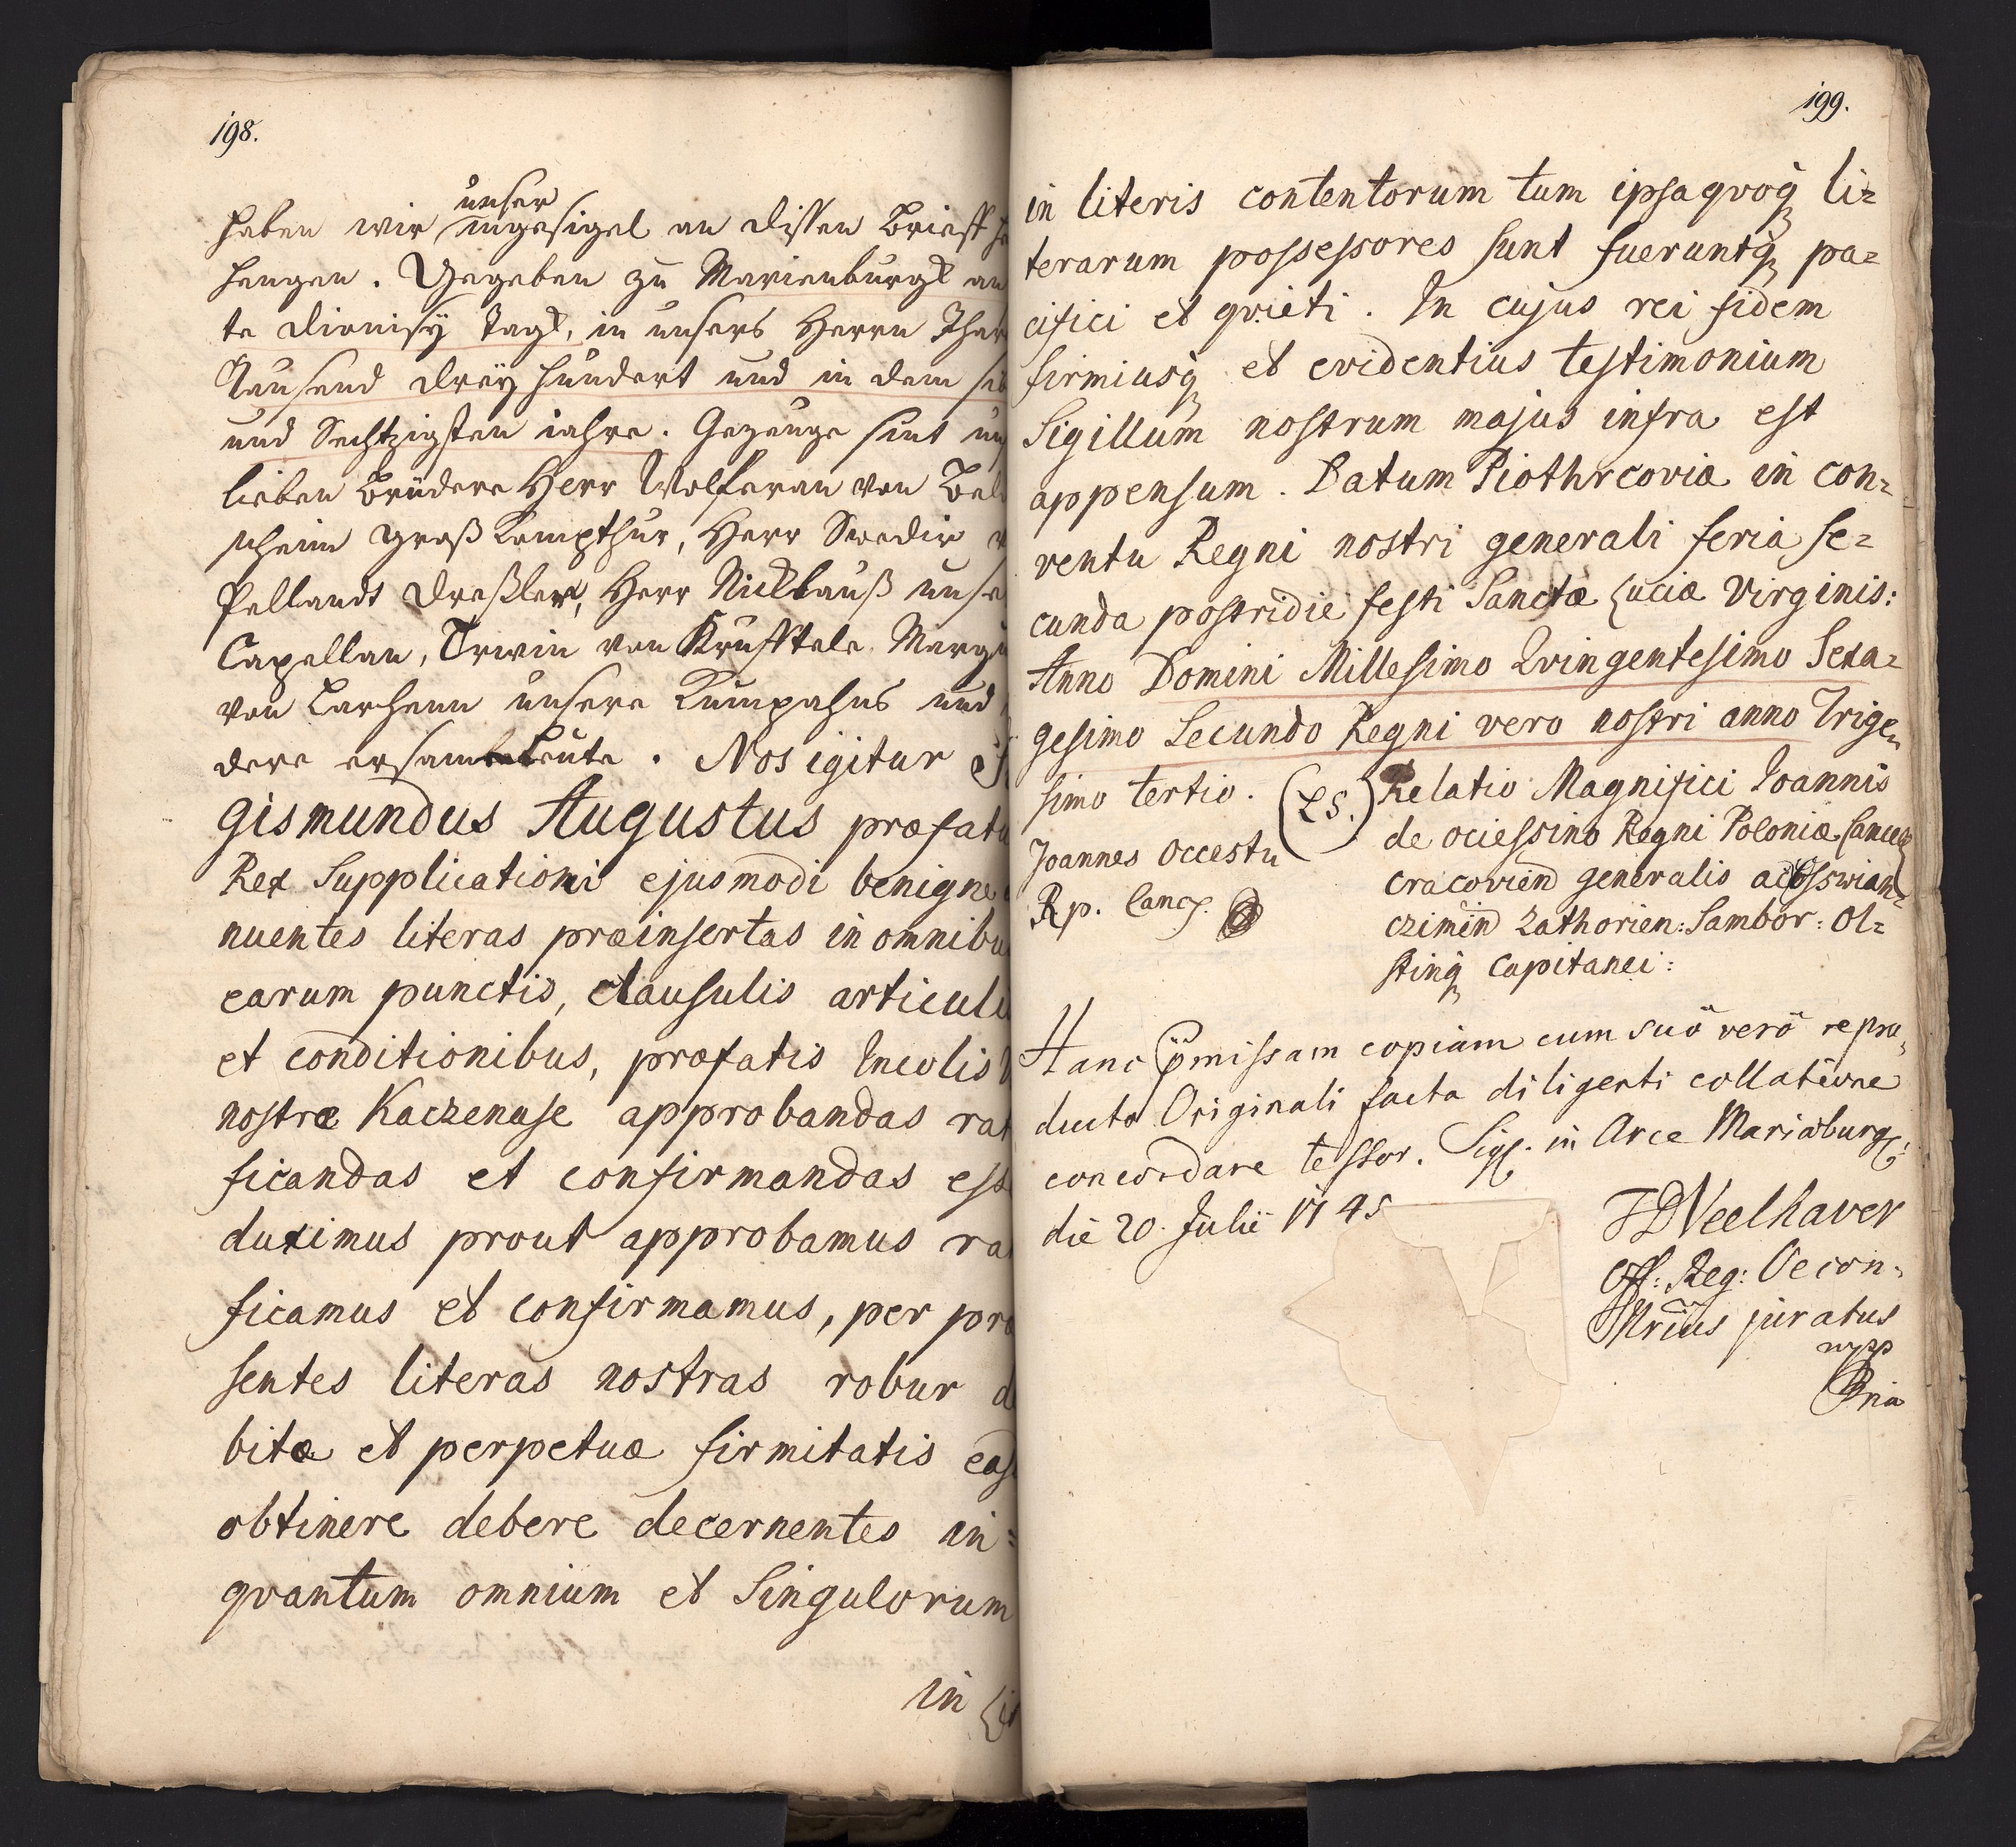 198.
haben wir unser ingesigel an dissen Brieff
hengen. Gegeben zu Marienburgk an
te dionisÿ Tagk, in unsers Herrn Jhar
Tausend dreÿ hundert und in dem
und Sechtzigsten iahre. Gezeuge sint
lieben Brüdere Herr Wolferan von
scheim groß Kompthur, Herr Swedir
Pellandt dreßler, Herr Nicklauß unse
Capellan, Erwin von Krufftele
von unsere Kumpahns und
dere ersame Leute. Nos igitur
gismundus Augustus præfatu
Rex Supplicationi ejusmodi benigne
nuentes literas præinsertas in omnibu
earum punctis, clausulis articuli
et conditionibus, præfatis Incolis
nostræ Kaczenase approbandas rat
ficandas et confirmandas ess
duximus prout approbamus ra
ficamus et confirmamus, per præ
sentes literas nostras robur d
bitæ et perpetuæ firmitatis eas
obtinere debere decernentes in=
qvantum omnium et Singulorum
in li
199.
in literis contentorum tum ipsaqvoq li=
terarum possessores sunt fueruntq pa=
cifici et qvieti. In cujus rei fidem
firmiusq et evidentius testimonium
Sigillum nostrum majus infra est
appensum. Datum Piothrcoviæ in con=
ventu Regni nostri generali feria se=
cunda postridie festi Sanctæ Luciæ Virginis:
Anno Domini Millesimo Qvingentesimo Sexa=
gesimo Secundo Regni vero nostri anno Trige=
simo tertio. (LS.) Relatio Magnifici Joannis
de ociessino Regni Poloniæ Cancell
Joannes Occestu
Rp. Canc.
cracovien generalis ac Osswian=
czimen Zathorien: Sambor: Ol=
stinq Capitanei:
Hanc pmissam copiam cum suo vero repro=
ducto Originali facta diligenti collatione
concordare testor. Sig. in Arce Mariæburg:
die 20. Julii 1745
Neelhaver
Off: Reg: Oecon.
Nrius juratus
mpp